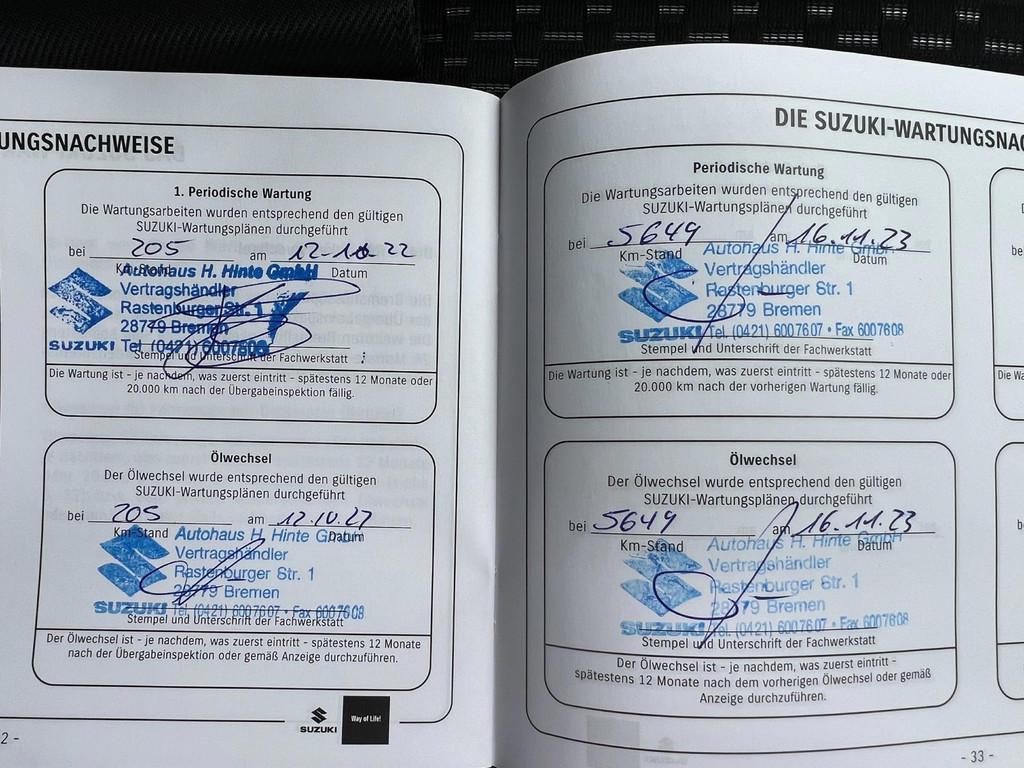 UNGSNACHWEISE
1. Periodische Wartung
Die Wartungsarbeiten wurden entsprechend den gültigen
SUZUKI-Wartungsplänen durchgeführt
bei 205 am 12-10-22
Km-Stand Datum
Autohaus H. Hinte GmbH
Vertragshändler
Rastenburger Str. 1
28779 Bremen
SUZUKI Tel (0421) 6007608
Stempel und Unterschrift der Fachwerkstatt
Die Wartung ist - je nachdem, was zuerst eintritt - spätestens 12 Monate oder
20.000 km nach der Übergabeinspektion fällig.
Ölwechsel
Der Ölwechsel wurde entsprechend den gültigen
SUZUKI-Wartungsplänen durchgeführt
bei 205 am 12.10.22
Km-Stand Datum
Autohaus H. Hinte GmbH
Vertragshändler
Rastenburger Str. 1
28779 Bremen
SUZUKI Tel. (0421) 6007607 • Fax 6007608
Stempel und Unterschrift der Fachwerkstatt
Der Ölwechsel ist - je nachdem, was zuerst eintritt - spätestens 12 Monate
nach der Übergabeinspektion oder gemäß Anzeige durchzuführen.
SUZUKI
Way of Life!
2 -
DIE SUZUKI-WARTUNGSNAC
Periodische Wartung
Die Wartungsarbeiten wurden entsprechend den gültigen
SUZUKI-Wartungsplänen durchgeführt
bei 5649 am 16.11.23
Km-Stand Datum
Autohaus H. Hinte GmbH
Vertragshändler
Rastenburger Str. 1
28779 Bremen
SUZUKI Tel. (0421) 6007607 • Fax 6007608
Stempel und Unterschrift der Fachwerkstatt
Die Wartung ist - je nachdem, was zuerst eintritt - spätestens 12 Monate oder
20.000 km nach der vorherigen Wartung fällig.
Ölwechsel
Der Ölwechsel wurde entsprechend den gültigen
SUZUKI-Wartungsplänen durchgeführt
bei 5649 am 16.11.23
Km-Stand Datum
Autohaus H. Hinte GmbH
Vertragshändler
Rastenburger Str. 1
28779 Bremen
SUZUKI Tel. (0421) 6007607 • Fax 6007608
Stempel und Unterschrift der Fachwerkstatt
Der Ölwechsel ist - je nachdem, was zuerst eintritt -
spätestens 12 Monate nach dem vorherigen Ölwechsel oder gemäß
Anzeige durchzuführen.
Die Wa
- 33 -